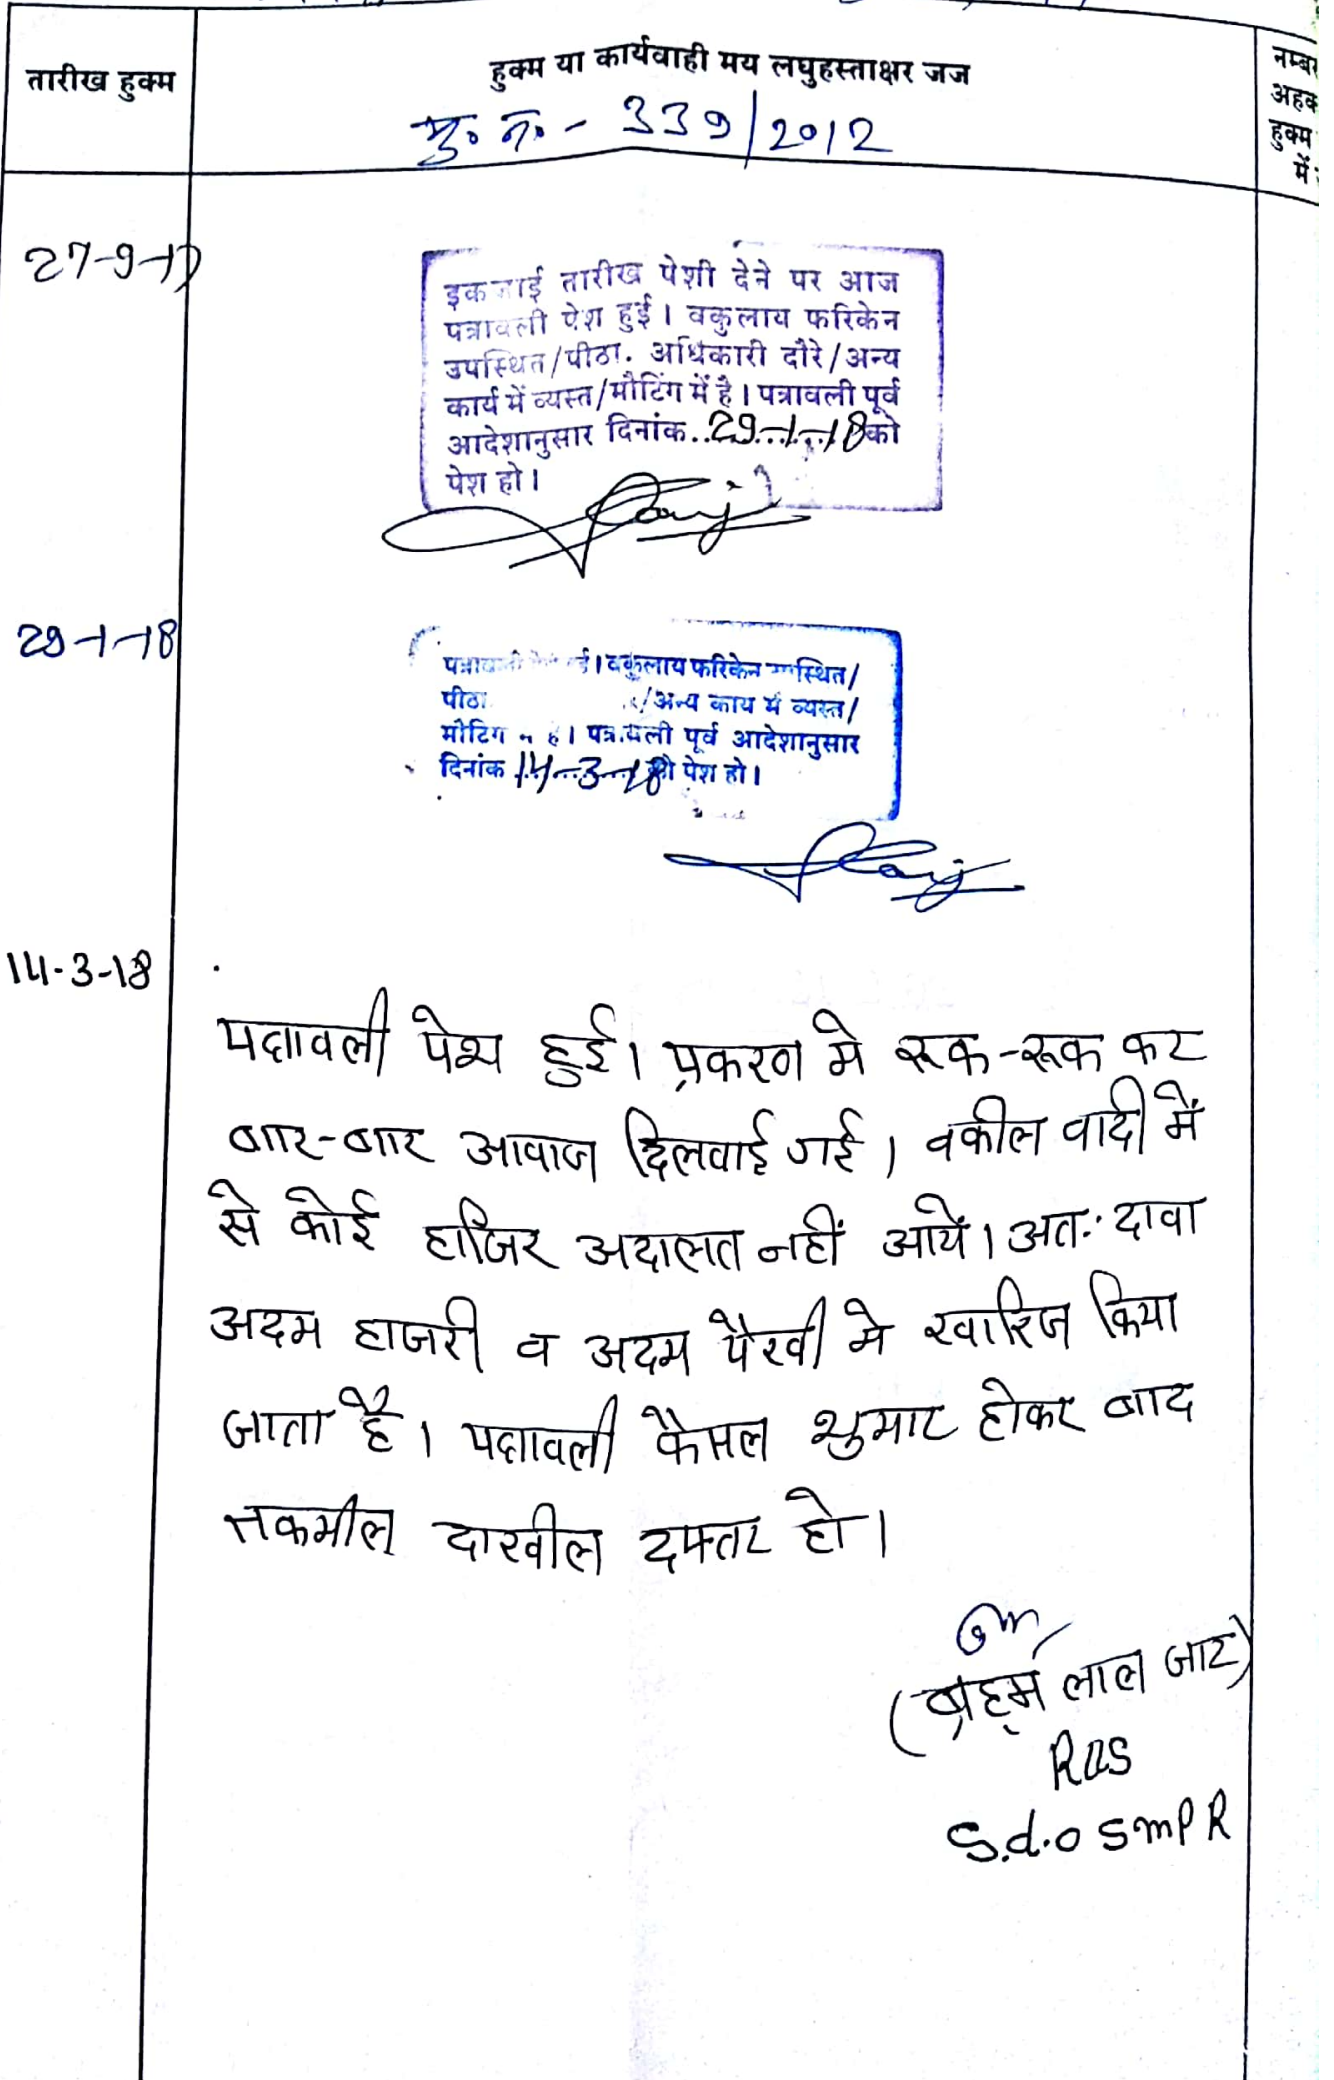 तारीख हुक्म
हुक्म या कार्यवाही मय लघुहस्ताक्षर जज
नम्बर
अहक
हुक्म
में
मु. न. - 339/2012
27-9-17
इकजाई तारीख पेशी देने पर आज
पत्रावली पेश हुई। वकुलाय फरिकेन
उपस्थित/पीठा. अधिकारी दौरे/अन्य
कार्य में व्यस्त/मीटिंग में है। पत्रावली पूर्व
आदेशानुसार दिनांक..29-1-18 को
पेश हो।
29-1-18
पत्रावली ई। वकुलाय फरिकेन उपस्थित/
पीठा /अन्य काय में व्यस्त/
मीटिंग है। पत्रावली पूर्व आदेशानुसार
दिनांक 14-3-18 को पेश हो।
14-3-18
पत्रावली पेश हुई। प्रकरण मे रूक-रूक कर
बार-बार आवाज दिलवाई गई। वकील वादी में
से कोई हाजिर अदालत नहीं आयें। अतः दावा
अदम हाजरी व अदम पैरवी मे खारिज किया
जाता है। पत्रावली फैसल शुमार होकर बाद
तकमील दाखील दफ्तर हो।
(ब्रह्म लाल जाट)
RAS
S.d.o SMPR